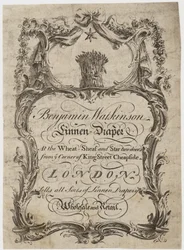 Benjamin Watkinson
Linnen-Draper
At the Wheat-Sheaf and Star two doors
from ye Corner of King Street Cheapside
LONDON,
Sells all Sorts of Linnen Drapery
Wholesale and Retail.